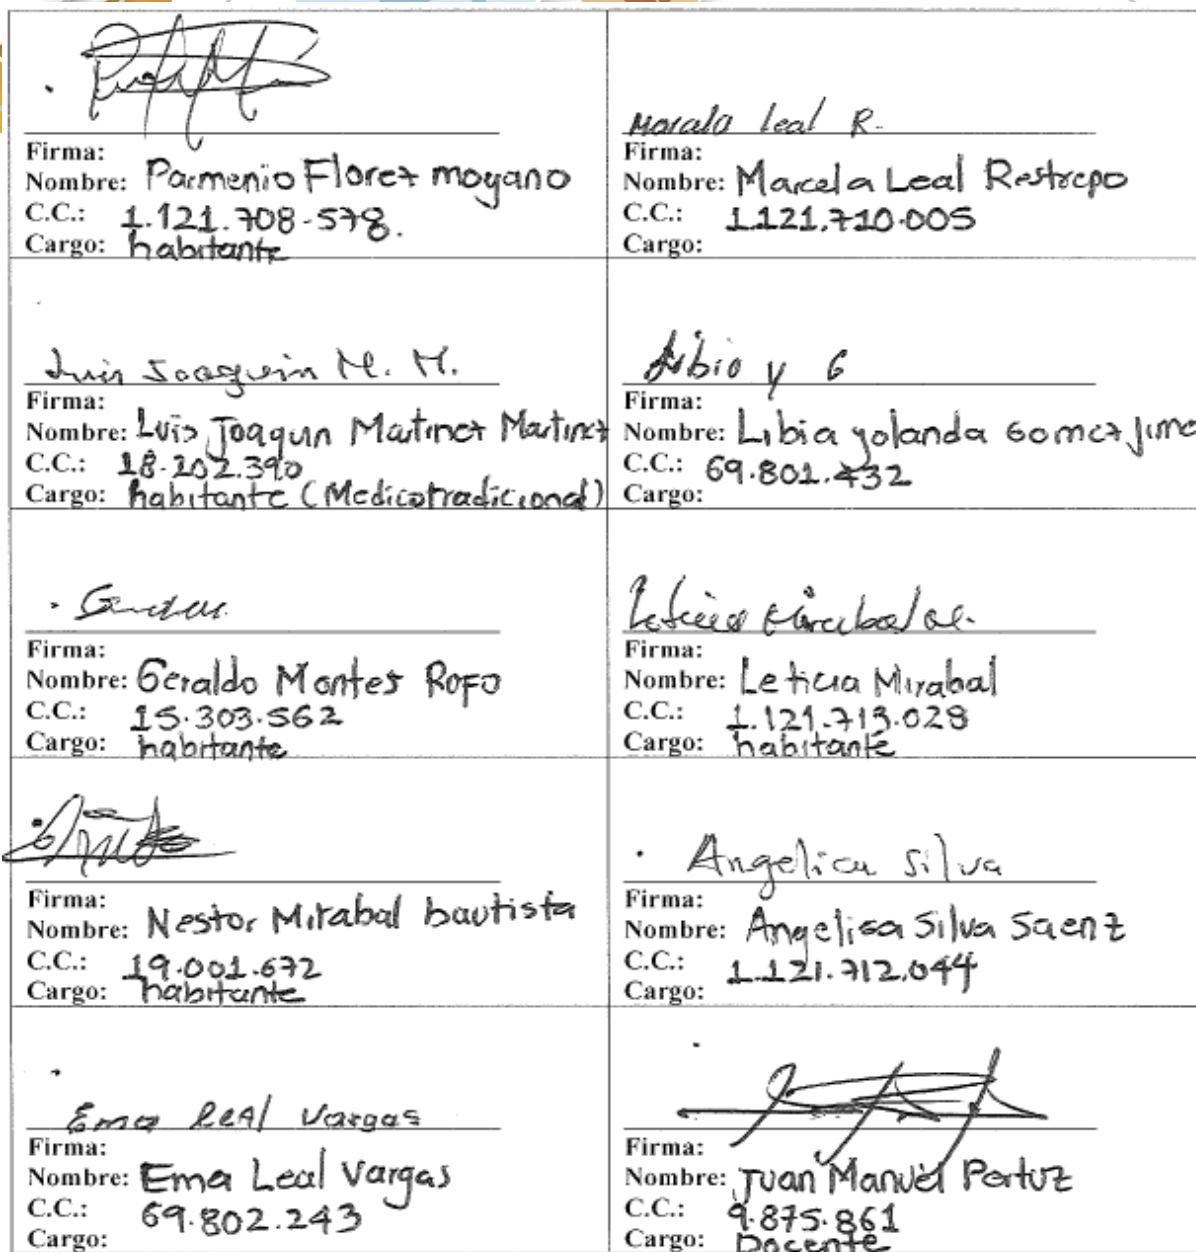 Marcela Leal R.
Firma:
Nombre: Parmenio Florez moyano
C.C.: 1.121.708-578.
Cargo: habitante
Firma:
Nombre: Marcela Leal Restrepo
C.C.: 1.121.710.005
Cargo:
Luis Joaquin M. M.
Firma:
Nombre: Luis Joaquin Martinez Martinez
C.C.: 18.202.390
Cargo: habitante (Medico tradicional)
Libia y G
Firma:
Nombre: Libia yolanda Gomez Jime
C.C.: 69.801.432
Cargo:
Firma:
Nombre: Geraldo Montes Rofo
C.C.: 15.303.562
Cargo: habitante
Leticia Mirabal
Firma:
Nombre: Leticia Mirabal
C.C.: 1.121.713.028
Cargo: habitante
Firma:
Nombre: Nestor Mirabal bautista
C.C.: 19.001.672
Cargo: habitante
Angelica Silva
Firma:
Nombre: Angelisa Silva Saenz
C.C.: 1.121.712.044
Cargo:
Ema Leal Vargas
Firma:
Nombre: Ema Leal Vargas
C.C.: 69.802.243
Cargo:
Firma:
Nombre: Juan Manuel Pertuz
C.C.: 9.875.861
Cargo: Docente